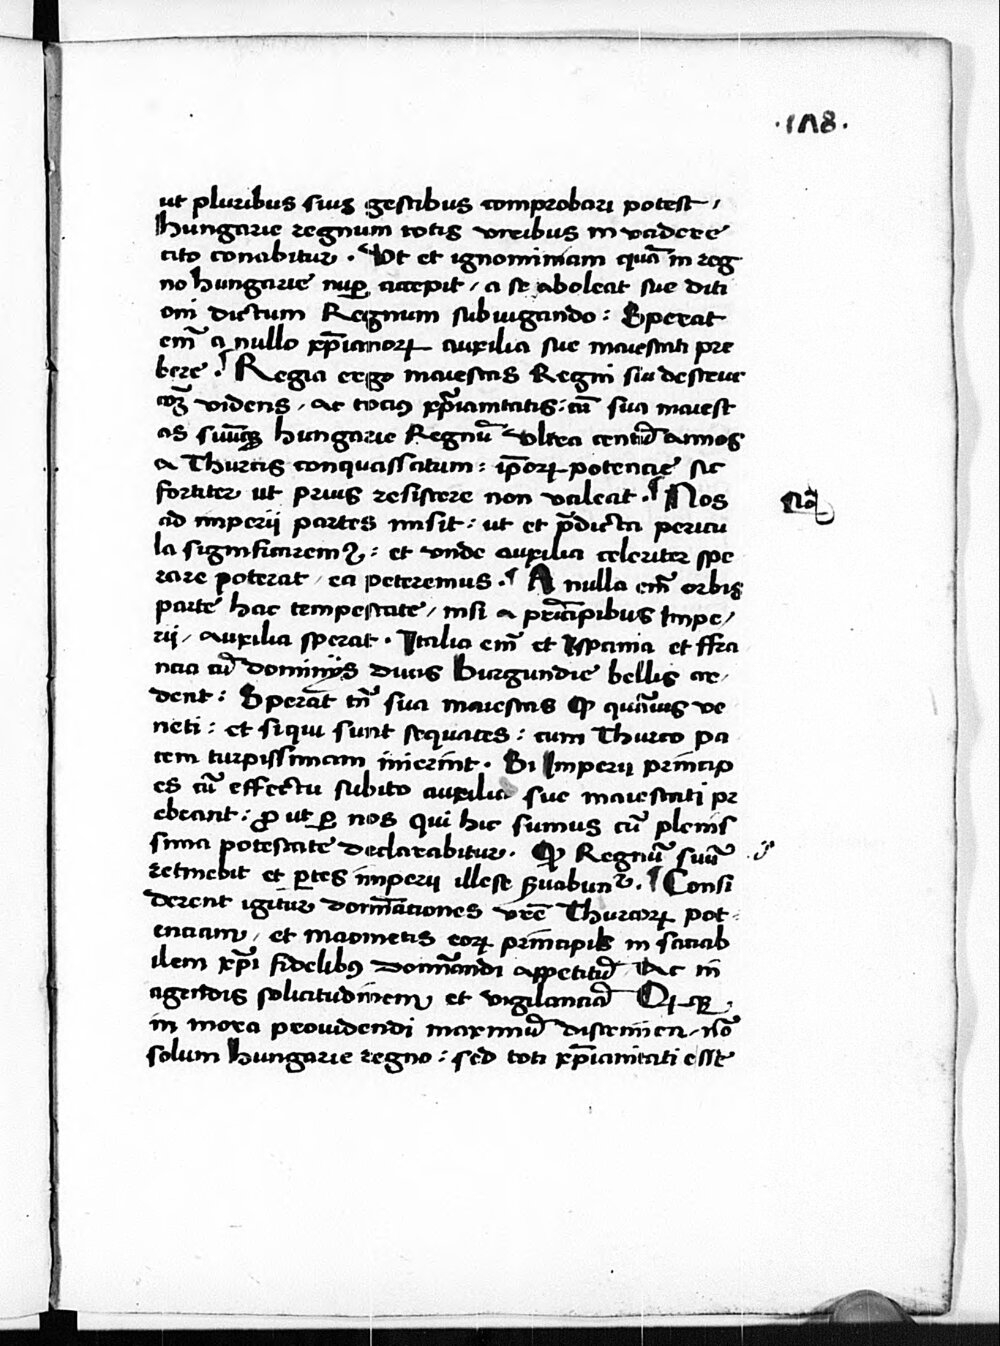 .178.
ut pluribus suis gestibus comprobari potest /
Hungarie regnum totis viribus in vadere
cito conabitur . Ut et ignominiam quā in reg
no hungarie nuꝑ accepit / a se aboleat sue diti
oni dictum Regnum subiugando : Sperat
em̄ a nullo xp̄ianorꝝ auxilia sue maiestati pre
bere . Regia ergo maiestas Regni sui destruc
videns / ac tocius xp̄ianitatis : cū sua maiest
as suūqꝫ hungarie Regnū Ultra centū annos
a Thurcis conquassatum : ip̄orꝝ potencie sic
fortiter ut prius resistere non valeat . Nos
Nōa
ad imperij partes misit : ut et p̄dicta pericu
la significaremꝰ : et unde auxilia celeriter spe
rare poterat / ea peteremus . A nulla em̄ orbis
parte hac tempestate / nisi a prīcipibus Impe/
rij / auxilia sperat . Italia em̄ et Ispania et ffra
ncia cū dominijs ducis Burgundie bellis ar/
dent : Sperat tn̄ sua maiestas ꝙ quāuis ve
neti : et siqui sunt sequaces : cum Thurco pa
cem turpissimam inierint . Si Imperij princip
es cū effectu subito auxilia sue maiestati pr
ebeant : ꝓ ut ꝑ nos qui hic sumus cū plenis
sima potestate declarabitur . ꝙ Regnū suū
retinebit et ꝑtes imperij illese s̄uabunt᷑ . Consi
derent igitur domīationes vr̄e Thurcorꝝ pot
enciam / et maometis eorꝝ principis in saciab
ilem xp̄i fidelibꝰ domīandi appetitū / Ac in
agendis solicitudinem et vigilanciā
in mora providendi maximū discrimen / nō
solum Hungarie regno : sed toti xp̄ianitati esse